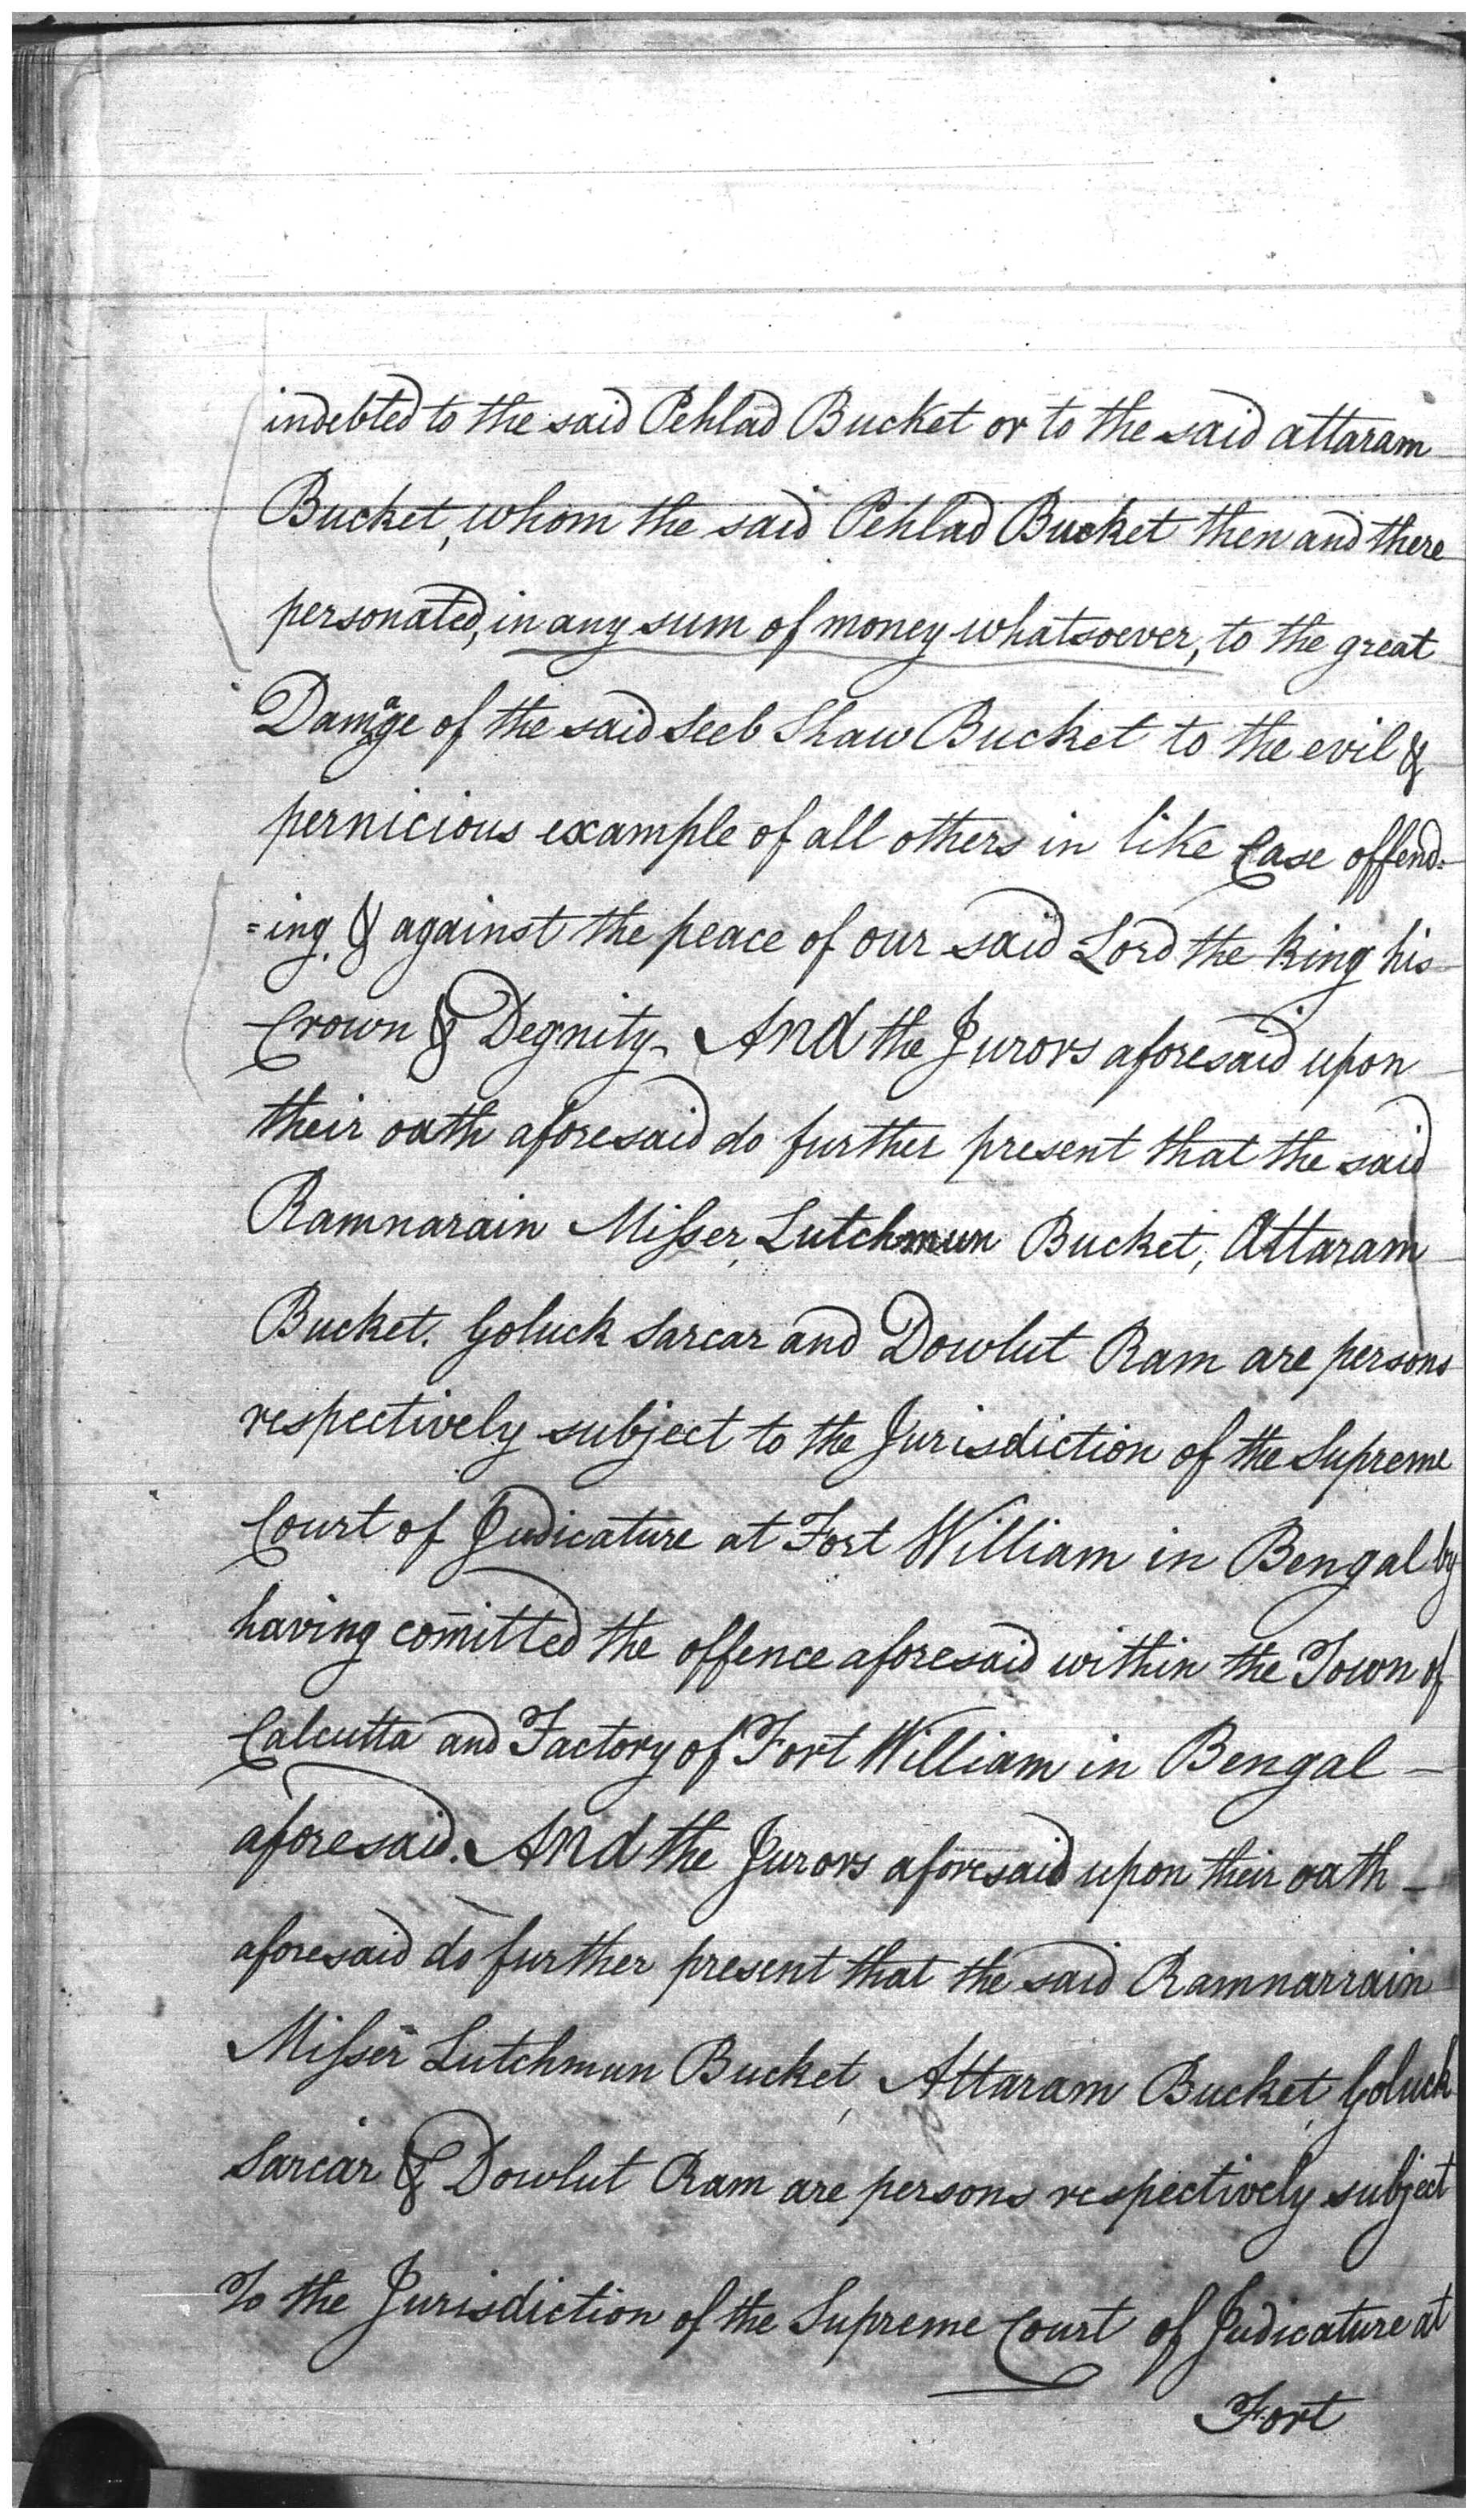 indebted to the said Pehlad Bucket or to the said attaram
Bucket, whom the said Pehlad Bucket then and there
personated, in any sum of money whatsoever, to the great
Damage of the said Seeb Shaw Bucket to the evil &
pernicious example of all others in like Case offend-
=ing, & against the peace of our said Lord the King his
Crown & Degnity. And the Jurors aforesaid upon
their oath aforesaid do further present that the said
Ramnarain Misser, Lutchmun Bucket, Attaram
Bucket. Goluck Sarcar and Dowlut Ram are persons
respectively subject to the Jurisdiction of the Supreme
Court of Judicature at Fort William in Bengal by
having com̄itted the offence aforesaid within the Town of
Calcutta and Factory of Fort William in Bengal —
aforesaid. And the Jurors aforesaid upon their oath —
aforesaid do further present that the said Ramnarrain
Misser Lutchmun Bucket, Attaram Bucket, Goluck
Sarcar & Dowlut Ram are persons respectively subject
To the Jurisdiction of the Supreme Court of Judicature at
Fort